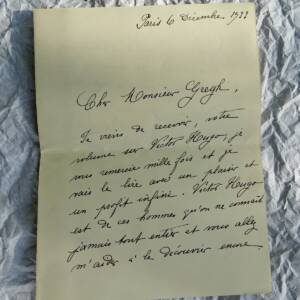 Paris 6 Décembre, 1922
Cher Monsieur Gregh,
Je viens de recevoir, votre
volume sur Victor Hugo, je
vous remercie mille fois et je
vais le lire avec un plaisir et
un profit infini. Victor Hugo
est de ces hommes qu'on ne connait
jamais tout entier et vous allez
m'aider à le découvrir encore